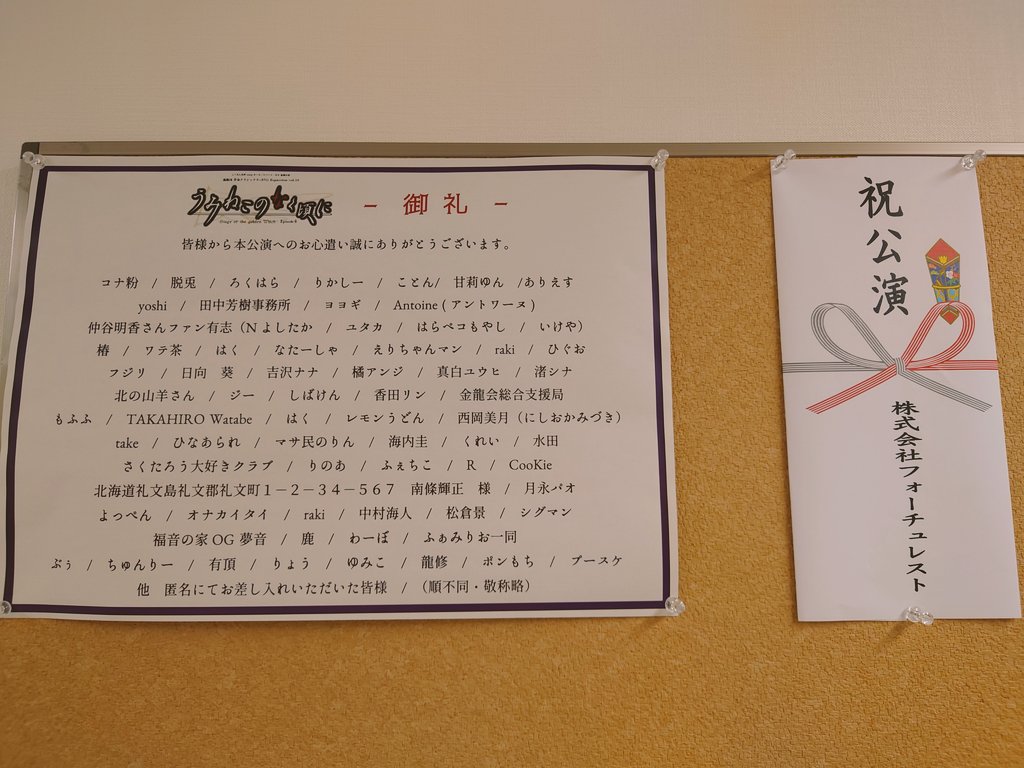 うみねこのなく頃に
Stage of the Golden Witch - Episode4
- 御礼 -
皆様から本公演へのお心遣い誠にありがとうございます。
コナ粉 / 脱兎 / ろくはら / りかしー / ことん/ 甘莉ゆん /ありえす
yoshi / 田中芳樹事務所 / ヨヨギ / Antoine ( アントワーヌ )
仲谷明香さんファン有志（N よしたか / ユタカ / はらペコもやし / いけや）
椿 / ワテ茶 / はく / なたーしゃ / えりちゃんマン / raki / ひぐお
フジリ / 日向 葵 / 吉沢ナナ / 橘アンジ / 真白ユウヒ / 渚シナ
北の山羊さん / ジー / しばけん / 香田リン / 金龍会総合支援局
もふふ / TAKAHIRO Watabe / はく / レモンうどん / 西岡美月（にしおかみづき）
take / ひなあられ / マサ民のりん / 海内圭 / くれい / 水田
さくたろう大好きクラブ / りのあ / ふぇちこ / R / CooKie
北海道礼文島礼文郡礼文町１－２－３４－５６７ 南條輝正 様 / 月永パオ
よっぺん / オナカイタイ / raki / 中村海人 / 松倉景 / シグマン
福音の家 OG 夢音 / 鹿 / わーぼ / ふぁみりお一同
ぶぅ / ちゅんりー / 有頂 / りょう / ゆみこ / 龍修 / ポンもち / ブースケ
他 匿名にてお差し入れいただいた皆様 / （順不同・敬称略）
祝公演
株式会社フォーチュレスト